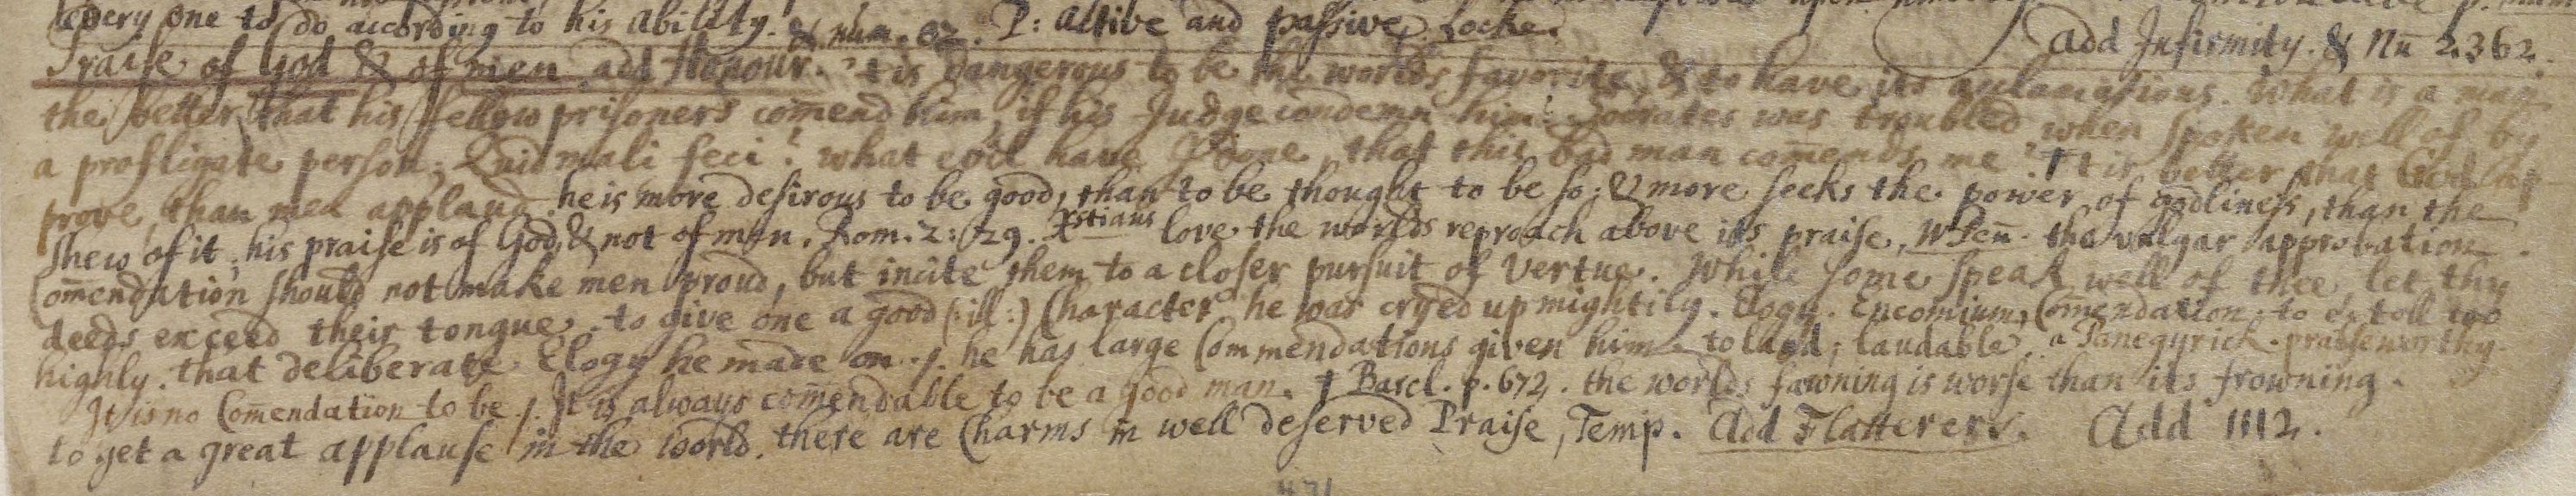 every one to do according to his ability. & num. 62. P: active and passive, Locke.
add Infirmity. & Nū 2.362.
Praise of God & of men add Honour. 't is dangerous to be the worlds favorite, & to have its acclamations. What is a man
the better that his fellow prisoners com̄end him, if his Judge condemn him? Socrates was troubled when spoken well of by
a profligate person, Quid mali feci? what evil have I done, that this bad man com̄ends me? † It is better that God ap-
prove, than men applaud. he is more desirous to be good, than to be thought to be so; & more seeks the power of godliness, than the
shew of it, his praise is of God, & not of men. Rom. 2: 29. Xstians love the worlds reproach above its praise, W Pen̄. the vulgar approbation.
Com̄endation should not make men proud, but incite them to a closer pursuit of Vertue. While some speak well of thee, let thy
deeds exceed their tongue. to give one a good (: ill :) Character. he was cryed up mightily. Elogy. Encomium, Com̄endation, to extoll too
highly. that deliberate Elogy he made on ./. he has large Commendations given him. to laud; laudable, a Panegyrick. praiseworthy.
It is no Com̄endation to be ./. It is always com̄endable to be a good man. † Barcl. p. 672. the worlds fawning is worse than its frowning.
to get a great applause in the world. there are Charms in well deserved Praise, Temp. Add Flatterers. Add 1112.